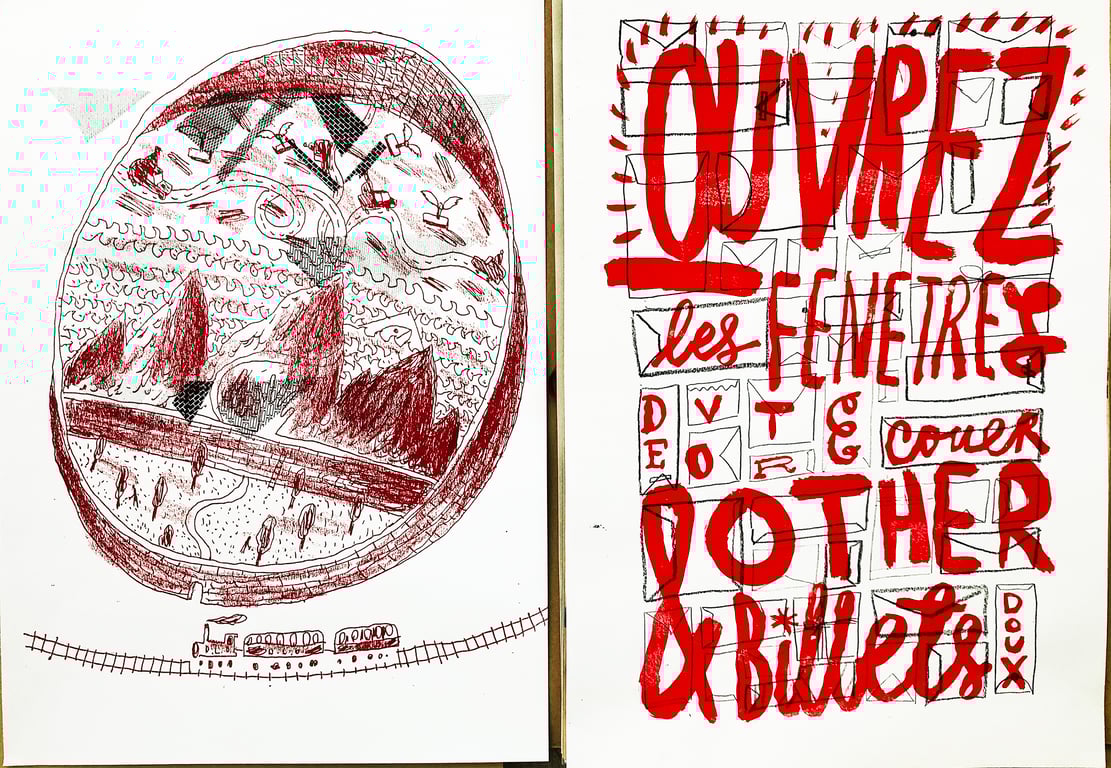 OUVREZ
les FENETRES
DE VOTRE couer
DOTHER
& Billets DOUX